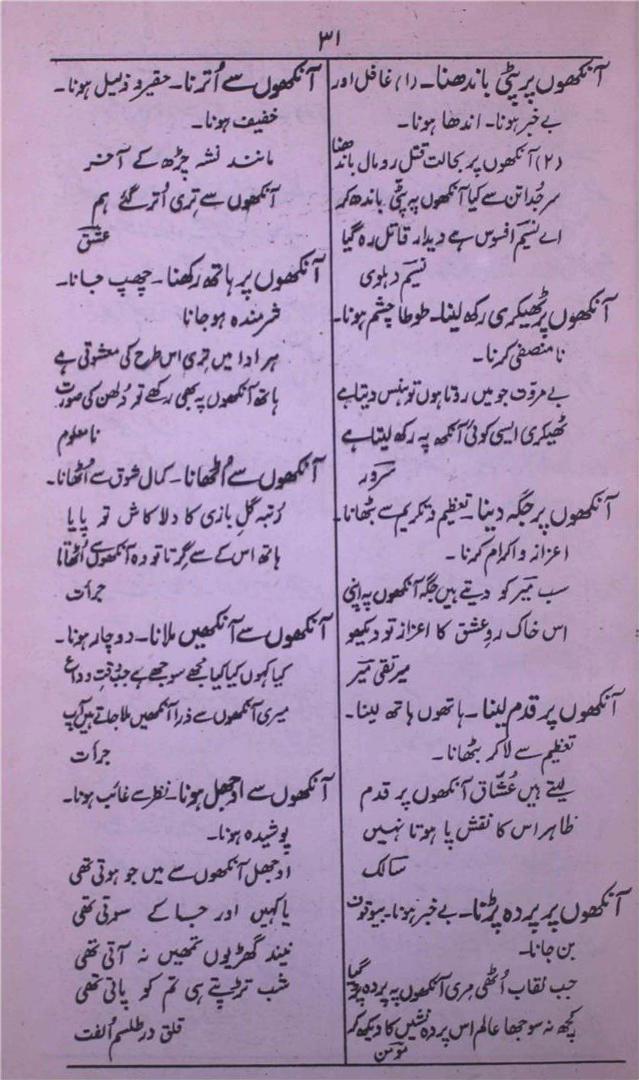 ۳۱
آنکھوں پر پٹی باندھنا۔ (۱) غافل اور
بے خبر ہونا۔ اندھا ہونا۔
(۲) آنکھوں پر بحالت قتل رومال باندھنا
سر جُدا تن سے کیا آنکھوں پہ پٹی باندھ کر
اے نسیم افسوس ہے دیدار قاتل رہ گیا
نسیم دہلوی
آنکھوں پر ٹھیکری رکھ لینا۔ طوطا چشم ہونا۔
نا منصفی کرنا۔
بے مروّت جو میں روتا ہوں تو ہنس دیتا ہے
ٹھیکری ایسی کوئی آنکھ پہ رکھ لیتا ہے
سرور
آنکھوں پر جگہ دینا۔ تعظیم و تکریم سے بٹھانا۔
اعزاز و اکرام کرنا۔
سب میر کو دیتے ہیں جگہ آنکھوں پہ اپنی
اس خاک رہِ عشق کا اعزاز تو دیکھو
میر تقی میر
آنکھوں پر قدم لینا۔ ہاتھوں ہاتھ لینا۔
تعظیم سے لا کر بٹھانا۔
لیتے ہیں عُشّاق آنکھوں پر قدم
ظاہر اس کا نقش پا ہوتا نہیں
سالک
آنکھوں پر پردہ پڑنا۔ بے خبر ہونا۔ بیوقوف
بن جانا۔
جب نقاب اُٹھی مِری آنکھوں پہ پردہ پڑ گیا
کچھ نہ سوجھا عالم اس پردہ نشیں کا دیکھ کر
مومن
آنکھوں سے اُترنا۔ حقیر و ذلیل ہونا۔
خفیف ہونا۔
مانند نشہ چڑھ کے آخر
آنکھوں سے تری اُتر گئے ہم
عشق
آنکھوں پر ہاتھ رکھنا۔ چھپ جانا۔
شرمندہ ہو جانا
ہر ادا میں تری اس طرح کی معشوقی ہے
ہاتھ آنکھوں پہ بھی رکھے تو دُلھن کی صورت
نا معلوم
آنکھوں سے اُٹھانا۔ کمال شوق سے اُٹھانا۔
رُتبہ گلِ بازی کا دلا کاش تو پایا
ہاتھ اس کے سے گرتا تو وہ آنکھوں سے اُٹھاتا
جرأت
آنکھوں سے آنکھیں ملانا۔ دو چار ہونا۔
کیا کہوں کیا کیا مجھے سوجھے ہے جب وقتِ وداع
میری آنکھوں سے ذرا آنکھیں ملا جاتے ہیں آپ
جرأت
آنکھوں سے اوجھل ہونا۔ نظر سے غائب ہونا۔
پوشیدہ ہونا۔
اوجھل آنکھوں سے میں جو ہوتی تھی
یا کہیں اور جا کے سوتی تھی
نیند گھڑیوں تمھیں نہ آتی تھی
شب تڑپتے ہی تم کو پاتی تھی
قلق در طلسم اُلفت